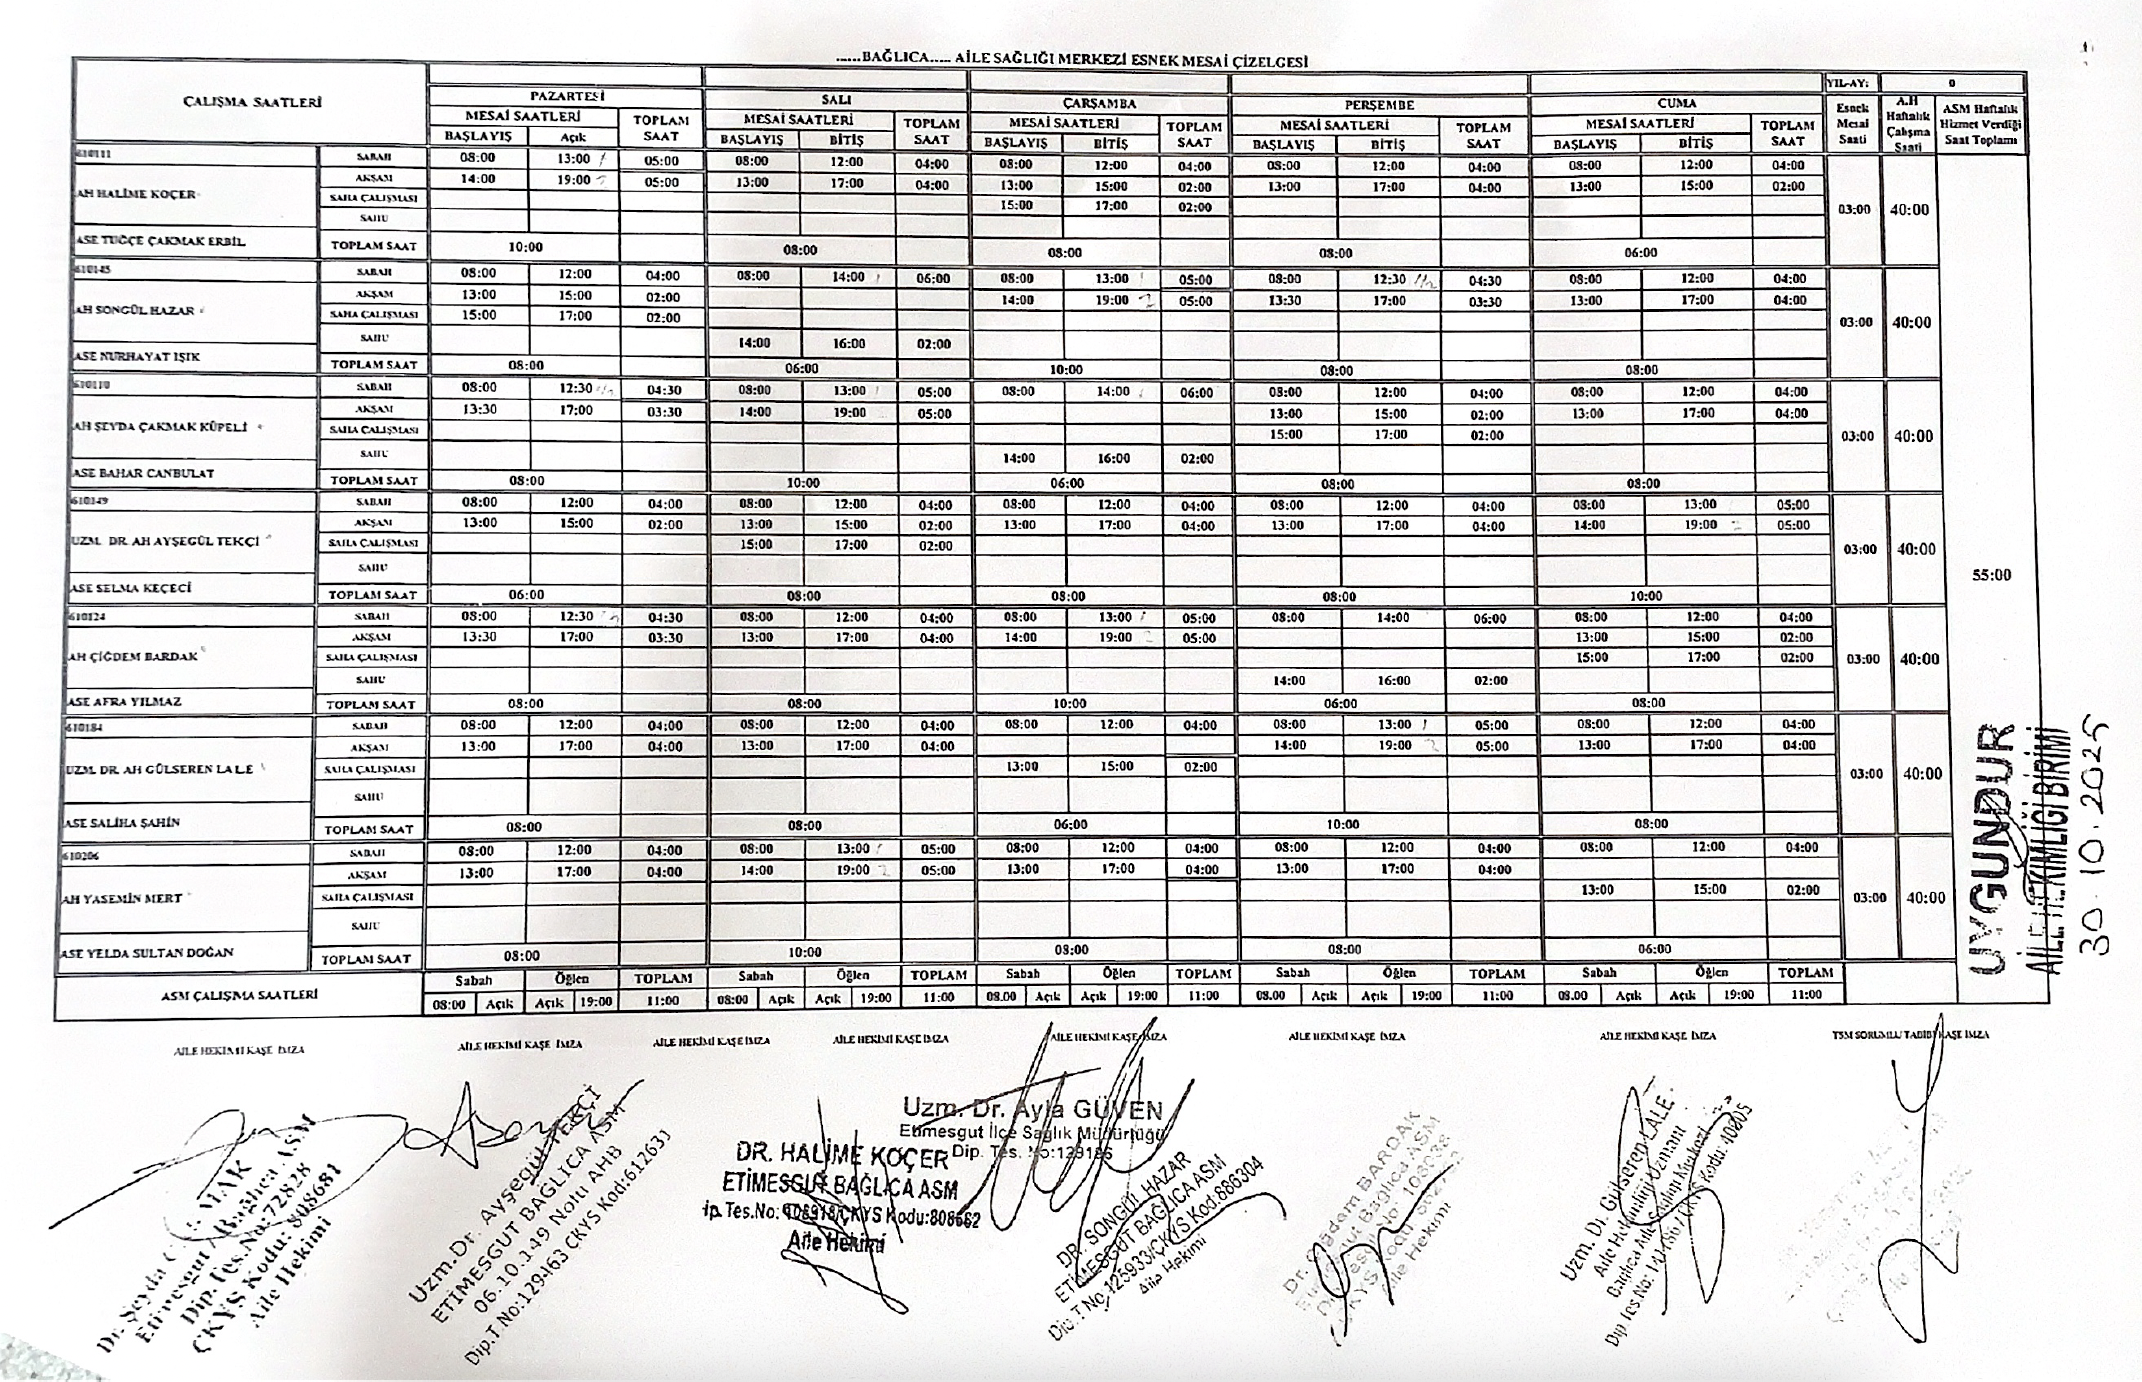 ......BAĞLICA..... AİLE SAĞLIĞI MERKEZİ ESNEK MESAİ ÇİZELGESİ
YIL-AY: 0
ÇALIŞMA SAATLERİ PAZARTESİ SALI ÇARŞAMBA PERŞEMBE CUMA Esnek Mesai Saati A.H Haftalık Çalışma Saati ASM Haftalık Hizmet Verdiği Saat Toplamı
MESAİ SAATLERİ TOPLAM SAAT MESAİ SAATLERİ TOPLAM SAAT MESAİ SAATLERİ TOPLAM SAAT MESAİ SAATLERİ TOPLAM SAAT MESAİ SAATLERİ TOPLAM SAAT
BAŞLAYIŞ Açık BAŞLAYIŞ BİTİŞ BAŞLAYIŞ BİTİŞ BAŞLAYIŞ BİTİŞ BAŞLAYIŞ BİTİŞ
610111 SABAH 08:00 13:00 05:00 08:00 12:00 04:00 08:00 12:00 04:00 08:00 12:00 04:00 08:00 12:00 04:00
AKŞAM 14:00 19:00 05:00 13:00 17:00 04:00 13:00 15:00 02:00 13:00 17:00 04:00 13:00 15:00 02:00
AH HALİME KOÇER SAHA ÇALIŞMASI 15:00 17:00 02:00 03:00 40:00
SAHU
ASE TUĞÇE ÇAKMAK ERBİL TOPLAM SAAT 10:00 08:00 08:00 08:00 06:00
610145 SABAH 08:00 12:00 04:00 08:00 14:00 06:00 08:00 13:00 05:00 08:00 12:30 04:30 08:00 12:00 04:00
AKŞAM 13:00 15:00 02:00 14:00 19:00 05:00 13:30 17:00 03:30 13:00 17:00 04:00
AH SONGÜL HAZAR SAHA ÇALIŞMASI 15:00 17:00 02:00 03:00 40:00
SAHU 14:00 16:00 02:00
ASE NURHAYAT IŞIK TOPLAM SAAT 08:00 06:00 10:00 08:00 08:00
610110 SABAH 08:00 12:30 04:30 08:00 13:00 05:00 08:00 14:00 06:00 08:00 12:00 04:00 08:00 12:00 04:00
AKŞAM 13:30 17:00 03:30 14:00 19:00 05:00 13:00 15:00 02:00 13:00 17:00 04:00
AH ŞEYDA ÇAKMAK KÜPELİ SAHA ÇALIŞMASI 15:00 17:00 02:00 03:00 40:00
SAHU 14:00 16:00 02:00
ASE BAHAR CANBULAT TOPLAM SAAT 08:00 10:00 06:00 08:00 08:00
610149 SABAH 08:00 12:00 04:00 08:00 12:00 04:00 08:00 12:00 04:00 08:00 12:00 04:00 08:00 13:00 05:00
AKŞAM 13:00 15:00 02:00 13:00 15:00 02:00 13:00 17:00 04:00 13:00 17:00 04:00 14:00 19:00 05:00
UZM. DR. AH AYŞEGÜL TEKÇİ SAHA ÇALIŞMASI 15:00 17:00 02:00 03:00 40:00
SAHU
55:00
ASE SELMA KEÇECİ TOPLAM SAAT 06:00 08:00 08:00 08:00 10:00
610124 SABAH 08:00 12:30 04:30 08:00 12:00 04:00 08:00 13:00 05:00 08:00 14:00 06:00 08:00 12:00 04:00
AKŞAM 13:30 17:00 03:30 13:00 17:00 04:00 14:00 19:00 05:00 13:00 15:00 02:00
AH ÇİĞDEM BARDAK SAHA ÇALIŞMASI 15:00 17:00 02:00 03:00 40:00
SAHU 14:00 16:00 02:00
ASE AFRA YILMAZ TOPLAM SAAT 08:00 08:00 10:00 06:00 08:00
610184 SABAH 08:00 12:00 04:00 08:00 12:00 04:00 08:00 12:00 04:00 08:00 13:00 05:00 08:00 12:00 04:00
AKŞAM 13:00 17:00 04:00 13:00 17:00 04:00 14:00 19:00 05:00 13:00 17:00 04:00
UZM. DR. AH GÜLSEREN LALE SAHA ÇALIŞMASI 13:00 15:00 02:00 03:00 40:00
SAHU
ASE SALİHA ŞAHİN TOPLAM SAAT 08:00 08:00 06:00 10:00 08:00
610206 SABAH 08:00 12:00 04:00 08:00 13:00 05:00 08:00 12:00 04:00 08:00 12:00 04:00 08:00 12:00 04:00
AKŞAM 13:00 17:00 04:00 14:00 19:00 05:00 13:00 17:00 04:00 13:00 17:00 04:00
AH YASEMİN MERT SAHA ÇALIŞMASI 13:00 15:00 02:00 03:00 40:00
SAHU
ASE YELDA SULTAN DOĞAN TOPLAM SAAT 08:00 10:00 08:00 08:00 06:00
Sabah Öğlen TOPLAM Sabah Öğlen TOPLAM Sabah Öğlen TOPLAM Sabah Öğlen TOPLAM Sabah Öğlen TOPLAM
ASM ÇALIŞMA SAATLERİ 08:00 Açık Açık 19:00 11:00 08:00 Açık Açık 19:00 11:00 08.00 Açık Açık 19:00 11:00 08.00 Açık Açık 19:00 11:00 08.00 Açık Açık 19:00 11:00
UYGUNDUR
AİLE HEKİMLİĞİ BİRİMİ
30.10.2025
AİLE HEKİMİ KAŞE İMZA AİLE HEKİMİ KAŞE İMZA AİLE HEKİMİ KAŞE İMZA AİLE HEKİMİ KAŞE İMZA AİLE HEKİMİ KAŞE İMZA AİLE HEKİMİ KAŞE İMZA AİLE HEKİMİ KAŞE İMZA TSM SORUMLU TABİBİ KAŞE İMZA
Dr. Şeyda
Etimesgut / Bağlıca ASM
Dip. Tes.No:72828
ÇKYS Kodu: 808681
Aile Hekimi
Uzm.Dr. Ayşegül TEKÇİ
ETİMESGUT BAĞLICA ASM
06.10.149 Nolu AHB
Dip.T.No:129463 ÇKYS Kod:612631
Uzm. Dr. Ayla GÜVEN
Etimesgut İlçe Sağlık Müdürlüğü
Dip. Tes. No:129186
DR. HALİME KOÇER
ETİMESGUT BAĞLICA ASM
ip.Tes.No: 108918/ÇKYS Kodu:808682
Aile Hekimi
DR. SONGÜL HAZAR
ETİMESGUT BAĞLICA ASM
Dip.T.No.125933/ÇKYS Kod:886304
Aile Hekimi
Dr. Çiğdem BARDAK
Etimesgut Bağlıca ASM
Aile Hekimi
Uzm. Dr. Gülseren LALE
Aile Hekimliği Uzmanı
Bağlıca Aile Sağlığı Merkezi